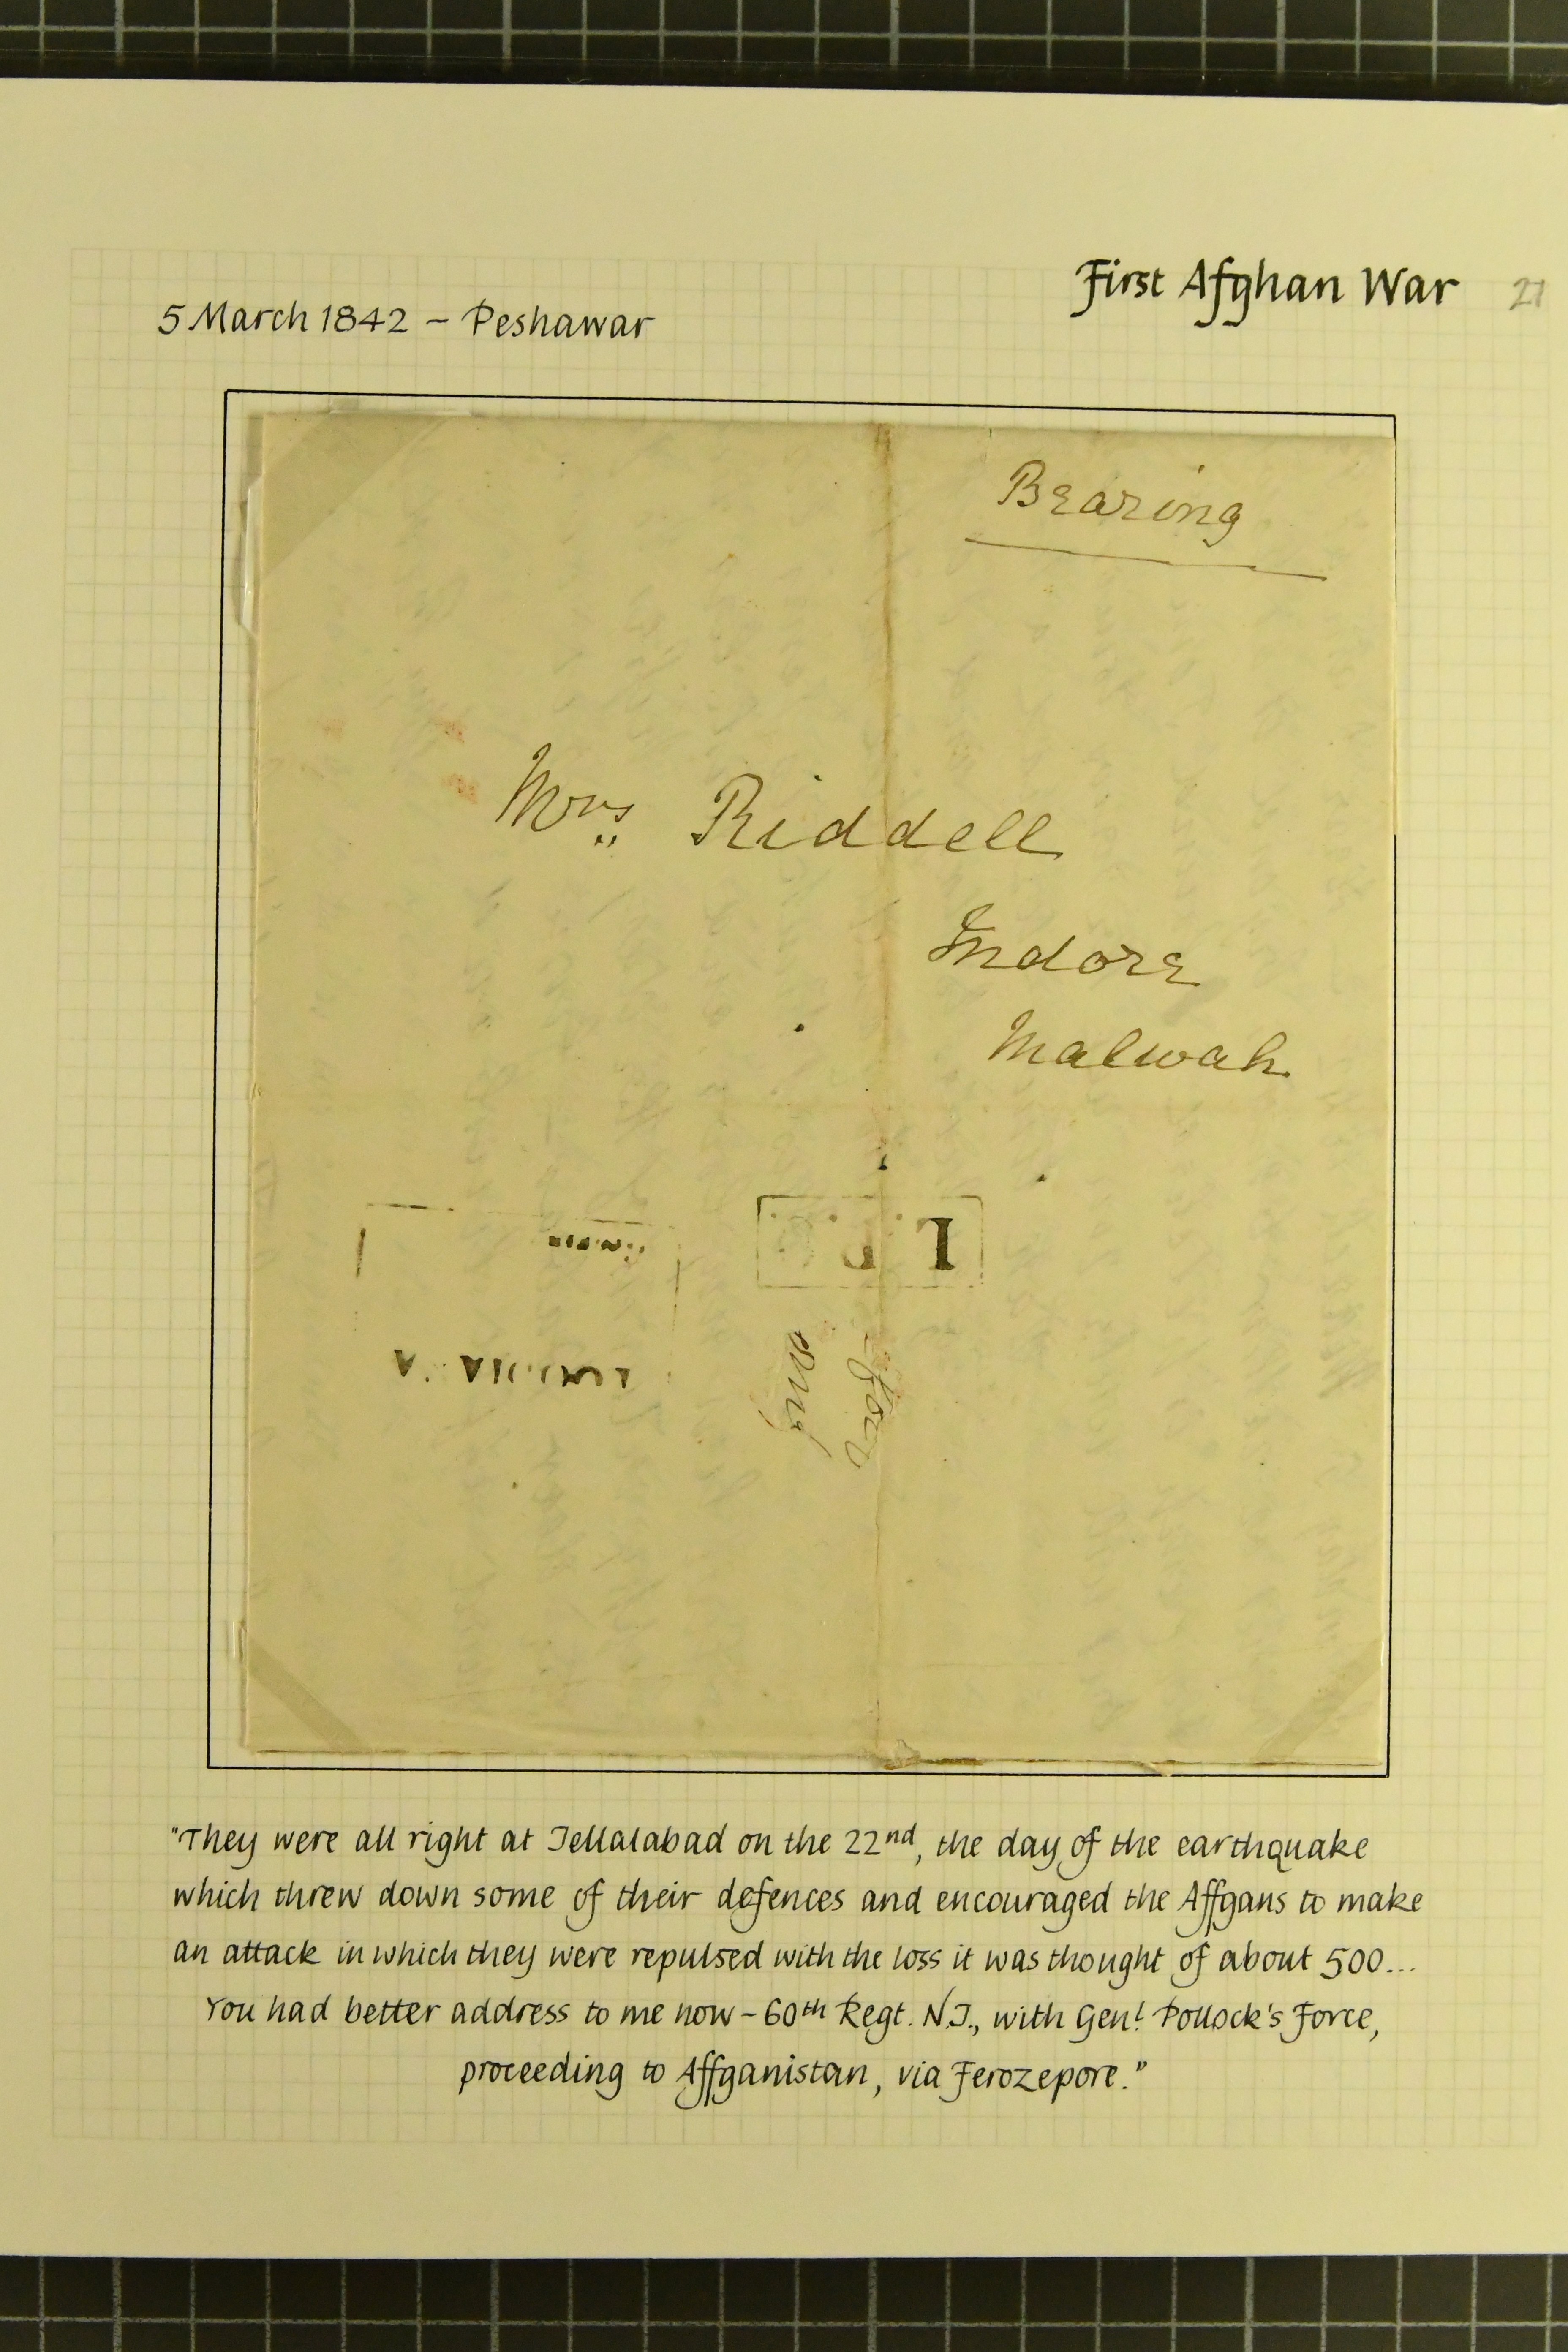 First Afghan War 21
5 March 1842 – Peshawar
Bearing
Mrs Riddell
Indore
Malwah
"They were all right at Jellalabad on the 22nd, the day of the earthquake
which threw down some of their defences and encouraged the Affgans to make
an attack in which they were repulsed with the loss it was thought of about 500...
You had better address to me now – 60th Regt. N.I., with Genl. Pollock's Force,
proceeding to Affganistan, via Ferozepore."